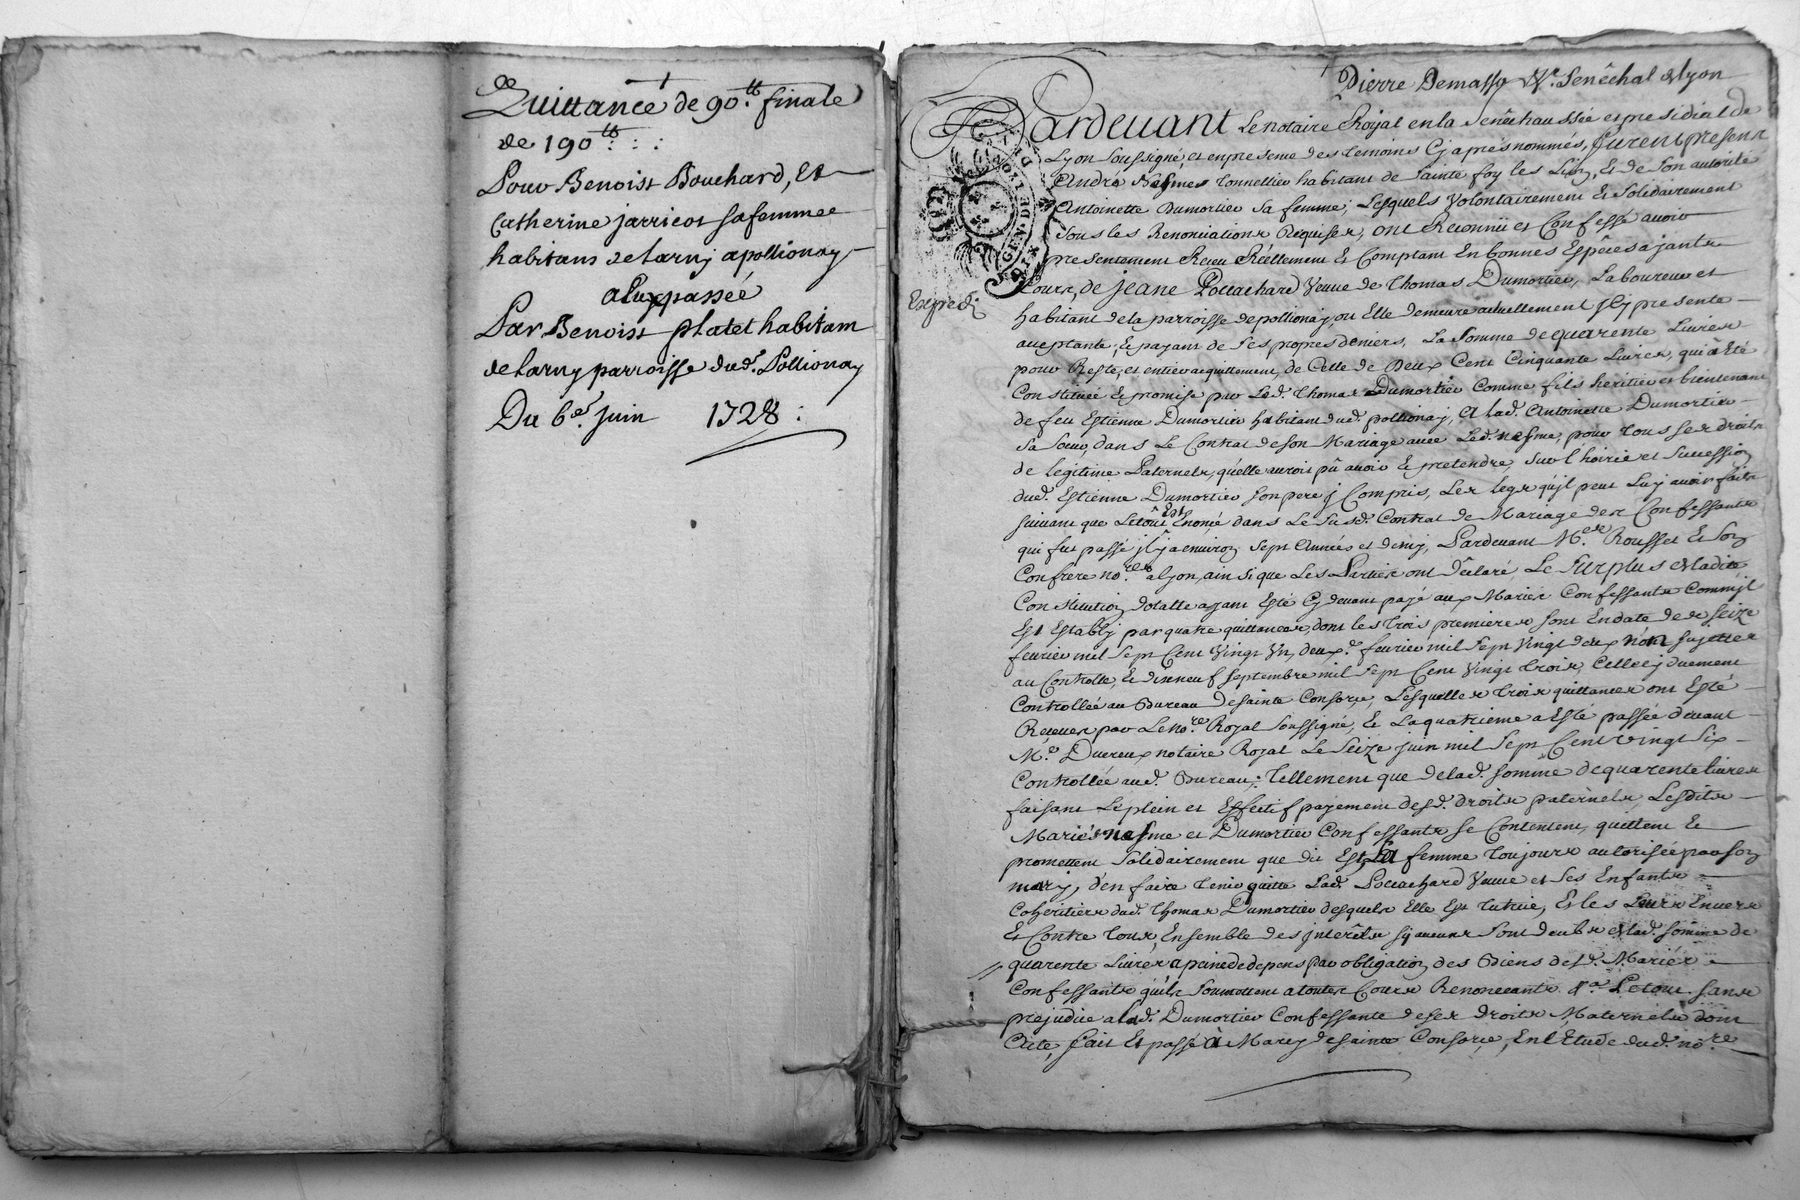 Quittance de 90.tt finale
de 190tt : :
Pour Benoist Bouchard, Et
Catherine jarricot sa femme
habitans de Larny a pollionay
a Eux passée
Par Benoist platet habitam
de Larny parroisse dud. Pollionay
Du 6.e Juin 1728 :
Pierre Demasso Sr. Senêchal de Lyon
Pardevant Le notaire Royal en la Senêchaussée et presidial de
Lyon Soussigné et en presence des temoins Cy aprés nommés, furent present
André Nesmes tonnellier habitant de Sainte foy les Lion, Et de son autorité
Antoinette Dumortier Sa femme, Lesquels Volontairement Et Solidairement
Sous les Renonciations Requises, ont Reconnü et Confessé avoir
presentement Receu Réellement Et Comptant En bonnes Espêces ajants
Cours, de jeane Veuve de Thomas Dumortier, Laboureur et
Expedi
habitant de la parroisse de pollionaj, ou Elle demeure actuellement jcy presente
aceptante, Et payant de Ses propres deniers, La Somme de quarente Livres
pour Reste, et entier acquittement de Celle de Deux Cent Cinquante Livres, qui â Eté
Constituée Et promise par Led. Thomas Dumortier Comme fils heritier et bientenant
de feu Estienne Dumortier habitant dud. pollionaj, A lad. Antoinette Dumortier
Sa Soeur, dans Le Contrat de son Mariage avec Led. nesme, pour tous ses droits
de legitime Paternels, qu'elle auroit pû avoir Et pretendre, Sur l'hoirie et Succession
dud. Estienne Dumortier Son pere y Compris, Les legs qu'jl peut Luy avoir faits
Suivant que Letout Est Enoncé dans Le Susd. Contrat de Mariage des Confessants
qui fut passé jl y a environ Sept Années et demy, Pardevant M.es Rousset Et Son
Confrere no.res a Lyon, ainsi que Les Parties ont Déclaré, Le Surplus de Ladite
Constitution dotalle ayant Esté Cy devant payé aux Mariés Confessants Comme jl
Est Establj par quatre quittances, dont les trois premieres Sont En date des Seize
fevrier mil Sept Cent Vingt Un, deux.e fevrier mil Sept Vingt deux non Sujettes
au Controlle, Et dixneuf Septembre mil Sept Cent Vingt trois Celle cy duement
Controllée au Bureau de Sainte Consorce, Lesquelles trois quittances ont Esté
Receues par Le No.re Royal Soussigné, Et La quatrieme a Esté passée devant
M.e Ducreux notaire Royal Le Seize juin mil Sept Cent Vingt Six
Controllée aud. Bureau; tellement que de lad. Somme de quarente livres
faisant Le plein et Effectif payement desd. droits paternels, Lesdits
Mariés nesme et Dumortier Confessants Se Contentent, quittent Et
promettent Solidairement que dit Est La femme toujours autorisée par Son
mary, d'en faire tenir quitte Lad. Veuve et Ses Enfants
Coheritiers dud. Thomas Dumortier desquels Elle Est tutrice, Et les Leurs Envers
Et Contre tous, Ensemble des jnterêts Sy aucuns Sont deubs de lad. Somme de
quarente Livres a peine de depens par obligation des Biens desd. Mariés
Confessants qu'ils Soumettent a toutes Cours Renonceants &a. Le tout Sans
prejudice a lad. Dumortier Confessante de ses droits Maternels dont
Acte, fait Et passé A Marcy de Sainte Consorce, En l'Etude dud. no.re